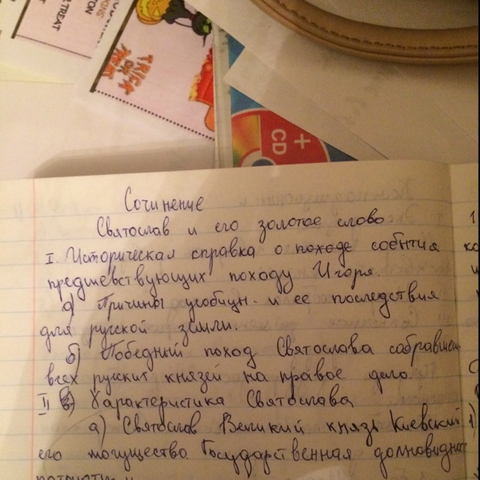 TREAT
TRICK
OR
TREAT
+
CD
Сочинение
Святослав и его золотое слово
I. Историческая справка о походе события
предшевствующих походу Игоря.
а) Причины усобицы и ее последствия
для русской земли.
б) Победний поход Святослава собравший
всех русских князей на правое дело.
II в) Характеристика Святослава
а) Святослав Великий князь Киевский
его могущество Государственная дольновидность